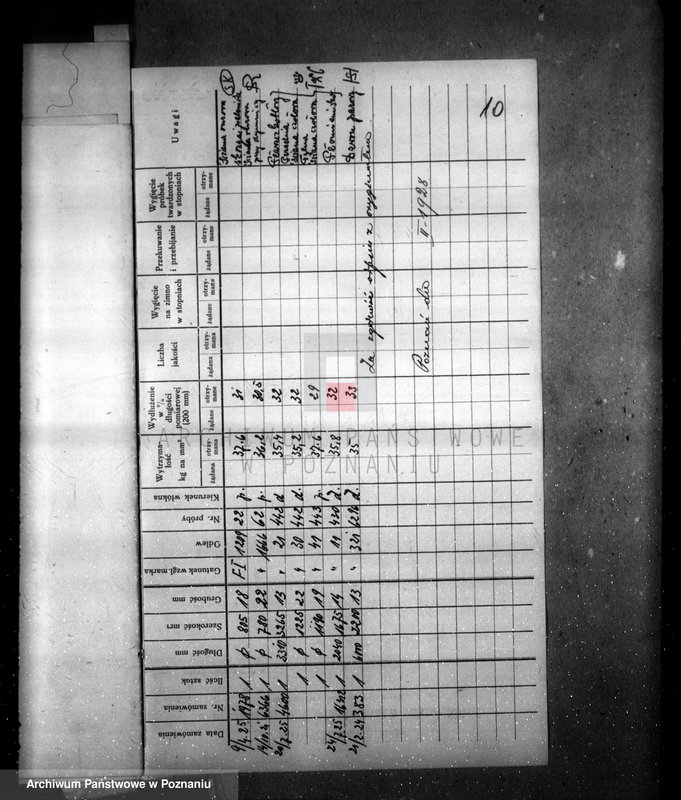 10
Data zamówienia
Nr. zamówienia
Ilość sztuk
Długość mm
Szerokość mm
Grubość mm
Gatunek wzgl. marka
Odlew
Nr. próby
Kierunek włókna
Wytrzyma-
łość
kg na mm²
żądana
otrzy-
mana
Wydłużenie
w %
długości
pomiarowej
(200 mm)
żądane
otrzy-
mane
Liczba
jakości
żądana
otrzy-
mana
Wygięcie
na zimno
w stopniach
żądane
otrzy-
mane
Przekuwanie
i przebijanie
żądane
otrzy-
mane
Wygięcie
próbek
twardzonych
w stopniach
żądane
otrzy-
mane
Uwagi
1 ø 805 18 FI 1209 22 p. 37.6 31
1 ø 780 22 " 1666 62 p. 36.2 30,5
1 3310 3265 13 " 21 442 d. 35,4 32
1 ø 1225 22 " 30 442 d. 35,2 32
1 ø 1190 19 " 41 443 p. 37.6 29
1 2040 1675 14 " 19 430 d. 35.8 32
21/2.24 383 1 6000 2200 13 " 321 6296 d. 35 33
Za zgodność odpisu z oryginałem
Poznań dn. II-1928
ARCHIWUM PAŃSTWOWE
W POZNANIU
Archiwum Państwowe w Poznaniu